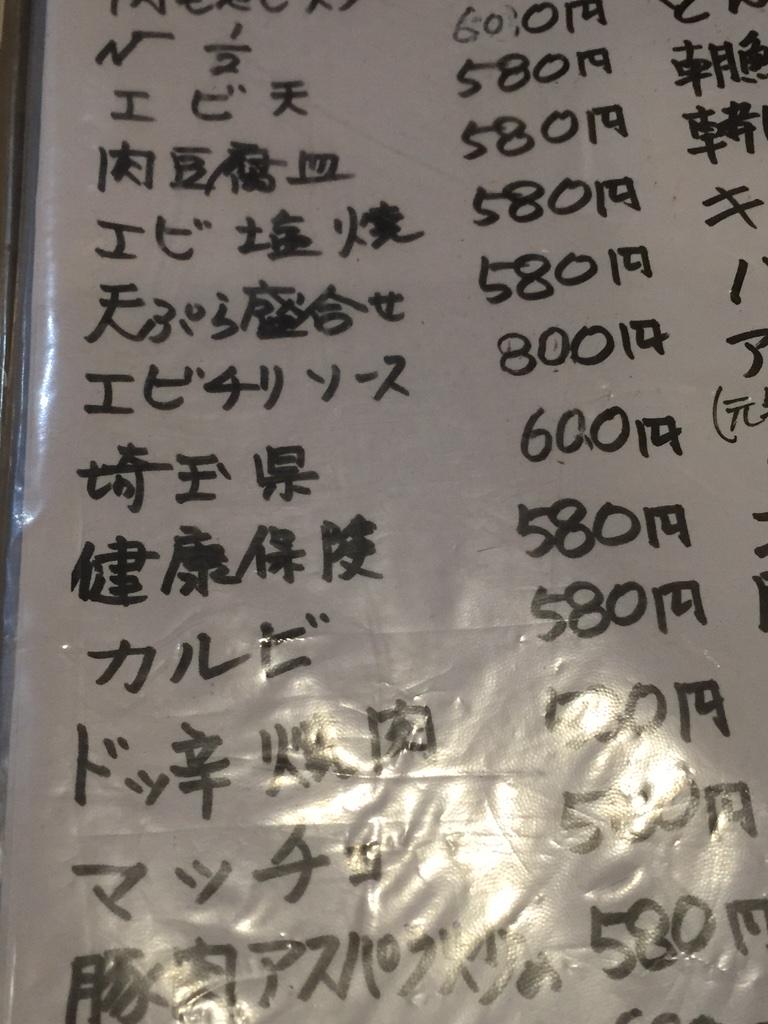 600円
〃 1/2 580円
エビ天 580円
肉豆腐皿 580円
エビ塩焼 580円
天ぷら盛合せ 800円
エビチリソース 600円
埼玉県 580円
健康保険 580円
カルビ
ドッ辛焼肉
マッチョ 580円
豚肉アスパラ
朝鮮
韓
キ
ア
(元